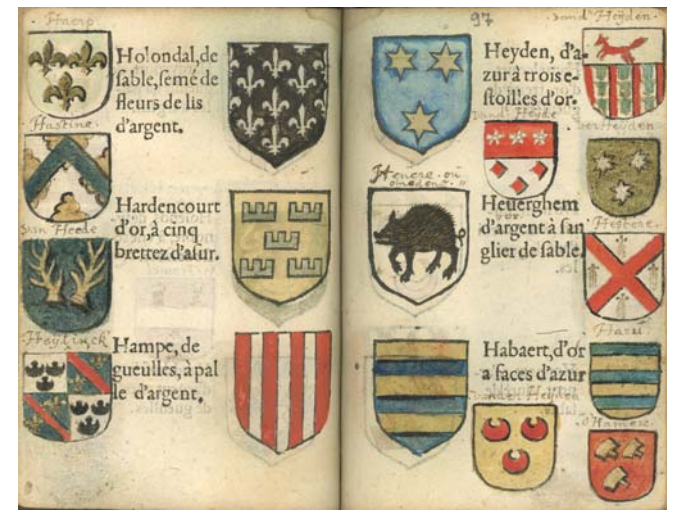 Haerp.
Holondal, de
sable, semé de
fleurs de lis
d'argent.
Hastine.
Hardencourt
d'or, à cinq
brettez d'asur.
van Heede
Heylinck
Hampe, de
gueulles, à pal
le d'argent.
97
vand' Heÿden.
Heyden, d'a-
zur à trois e-
stoilles d'or.
vand Heyde
verHeyden
Heuere. ou
Heuerghem
d'argent à san
glier de sable.
Hestere.
Habaert, d'or
a faces d'azur
vander Heyden